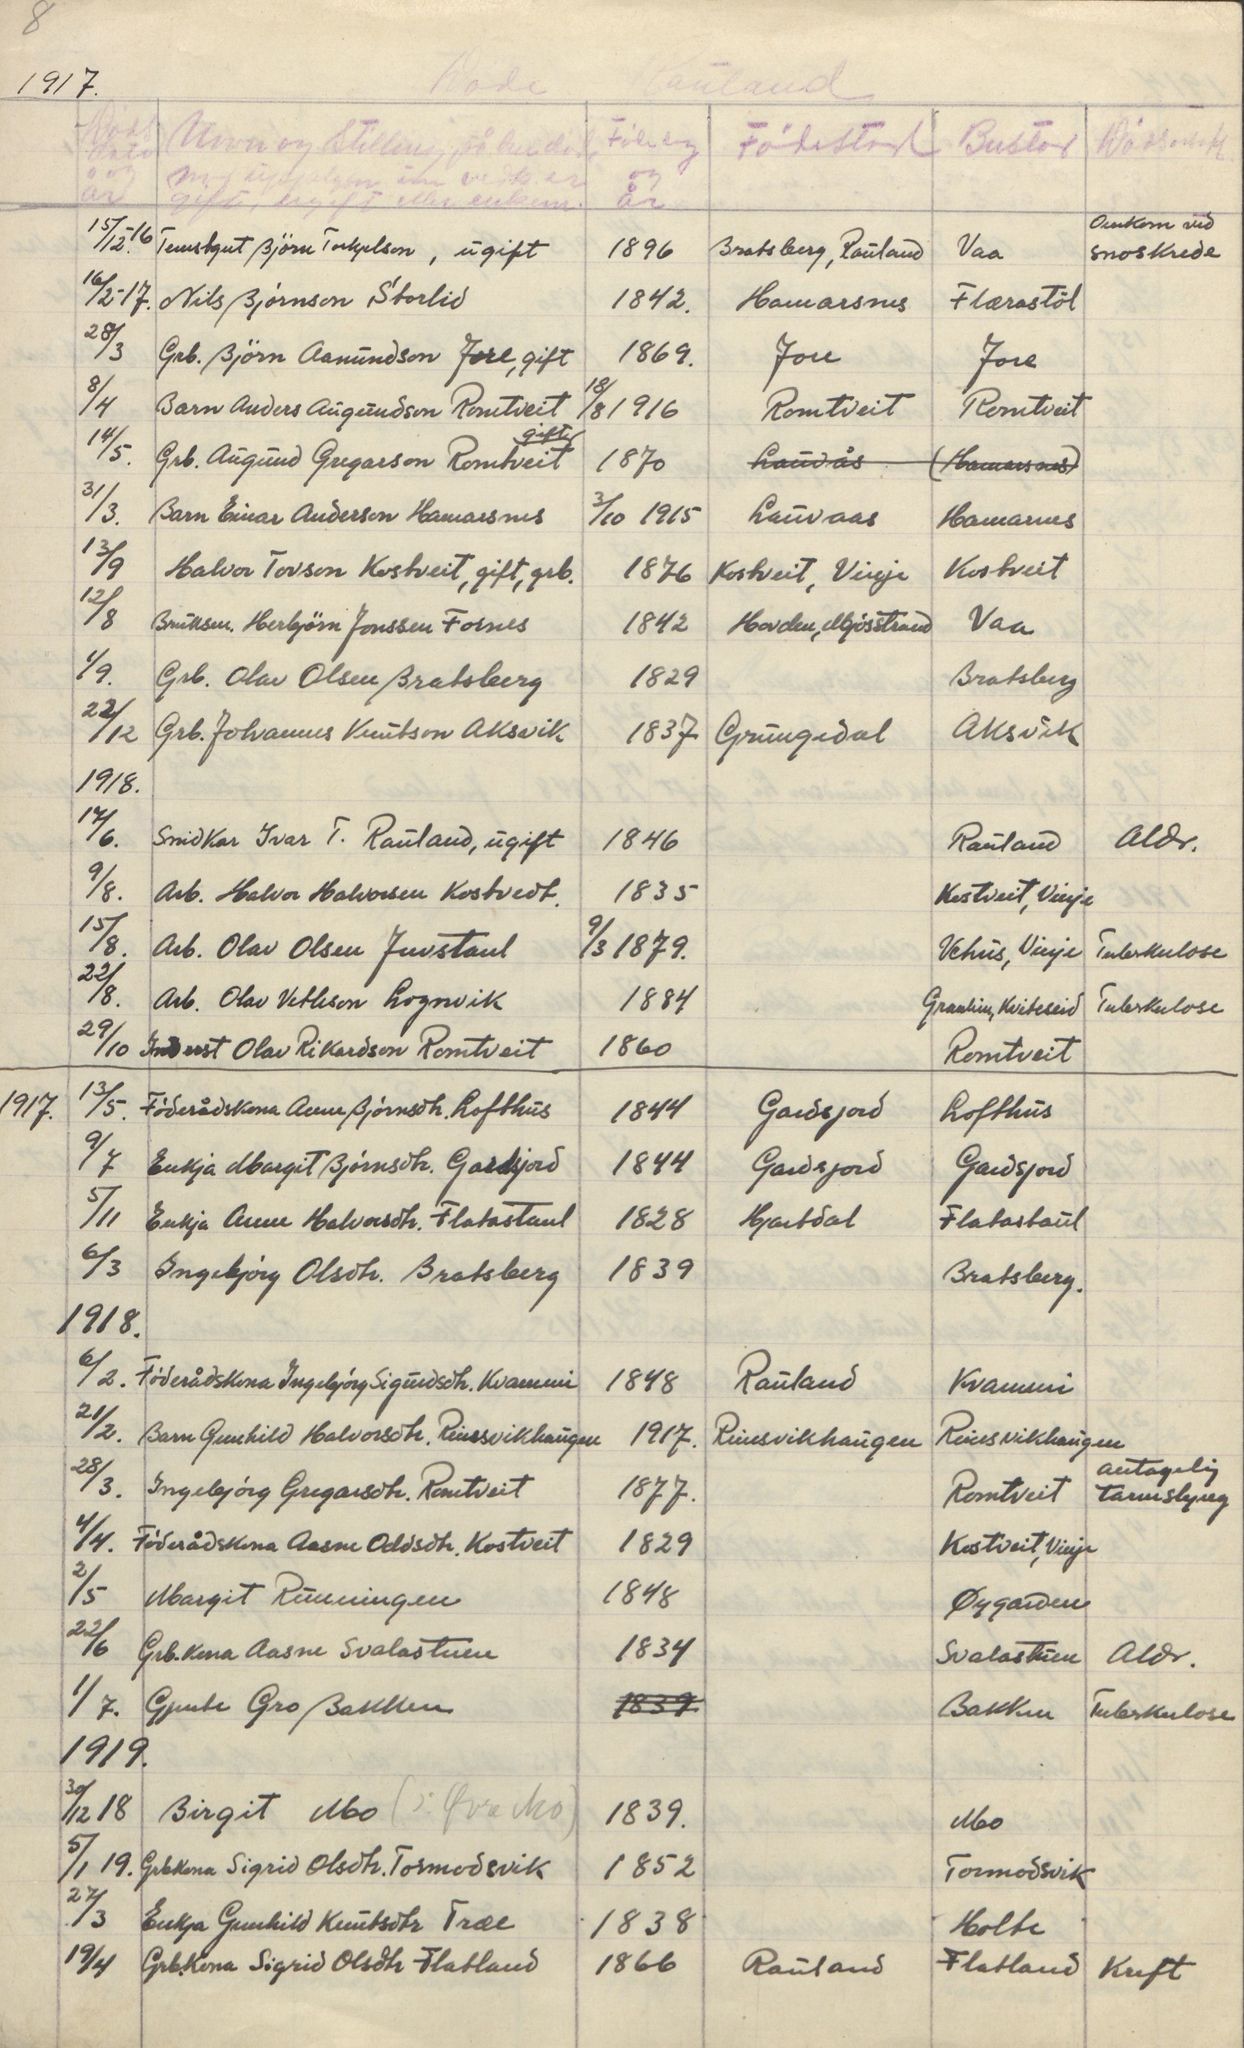 8
1917. Döde Rauland
Döds Namn og Stilling, Föde og Födestad Bustad
dato
og og
år gift, ugift eller enkem. år
15/12-16 Björn Torkjelson, ugift 1896 Bratsberg, Rauland Vaa Omkom ved snoskrede
16/2-17. Nils Björnson Storlid 1842. Hamarsnes Flærastöl
28/3 Grb. Björn Aamundson Jore, gift 1869. Jore Jore
8/4 Barn Anders Augundson Romtveit 18/8 1916 Romtveit Romtveit
14/5. Grb. Augund Gregarson Romtveit gift 1870 Lauvås (Hamarsnes)
31/3. Barn Einar Anderson Hamarsnes 3/10 1915 Lauvaas Hamarnes
13/9 Halvor Tovson Kostveit, gift, grb. 1876 Kostveit, Vinje Kostveit
12/8 Bruksm. Herbjörn Jonssen Fosnes 1842 Hovden, Mjösstrand Vaa
1/9. Grb. Olav Olsen Bratsberg 1829 Bratsberg
22/12 Grb. Johannes Knutson Aksvik 1837 Grungedal Aksvik
1918.
17/6. Smidkar Ivar T. Rauland, ugift 1846 Rauland Aldr.
9/8. Arb. Halvor Halvorsen Kostvedt. 1835 Kostveit, Vinje
15/8. Arb. Olav Olsen Juvstaul 9/3 1879. Vehus, Vinje Tuberkulose
22/8. Arb. Olav Vetleson Lognvik 1884 Kviteseid Tuberkulose
29/10 Inderst Olav Rikardson Romtveit 1860 Romtveit
1917. 13/5. Föderådskona Anne Björnsdtr. Lofthus 1844 Gardsjord Lofthus
9/7 Enkja Margit Björnsdtr. Gardsjord 1844 Gardsjord Gardsjord
5/11 Enkja Anne Halvorsdtr. Flatastaul 1828 Hjartdal Flatastaul
6/3 Ingebjörg Olsdtr. Bratsberg 1839 Bratsberg.
1918.
6/2. Föderådskona Ingebjörg Sigurdsdtr. Kvammi 1848 Rauland Kvammi
21/2. Barn Gunhild Halvorsdtr. Reinssvikhaugen 1917. Reinsvikhaugen Reinsvikhaugen
28/3. Ingebjörg Gregarsdtr. Romtveit 1877. Romtveit antagelig tarmslyng
4/4. Föderådskona Aasne Oddsdtr. Kostveit 1829 Kostveit, Vinje
2/5 Margit Runningen 1848 Øygarden
22/6 Grb.kona Aasne Svalastuen 1834 Svalastuen Aldr.
1/7. Gjente Gro Bakken 1839 Bakken Tuberkulose
1919.
30/12 18 Birgit Mo (i Øvre Mo) 1839. Mo
5/1 19. Grbkona Sigrid Olsdtr. Tormodsvik 1852 Tormodsvik
27/3 Enkja Gunhild Knutsdtr Træe 1838 Holte
19/4 Grb.kona Sigrid Olsdtr Flatland 1866 Rauland Flatland Kreft